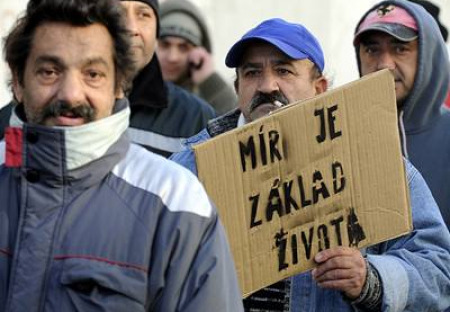 MÍR JE
ZÁKLAD
ŽIVOTA